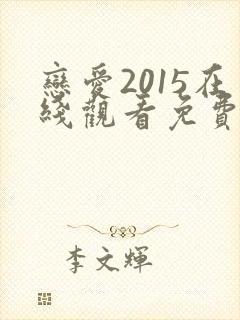 戀愛2015在
綫觀看免費
李文輝